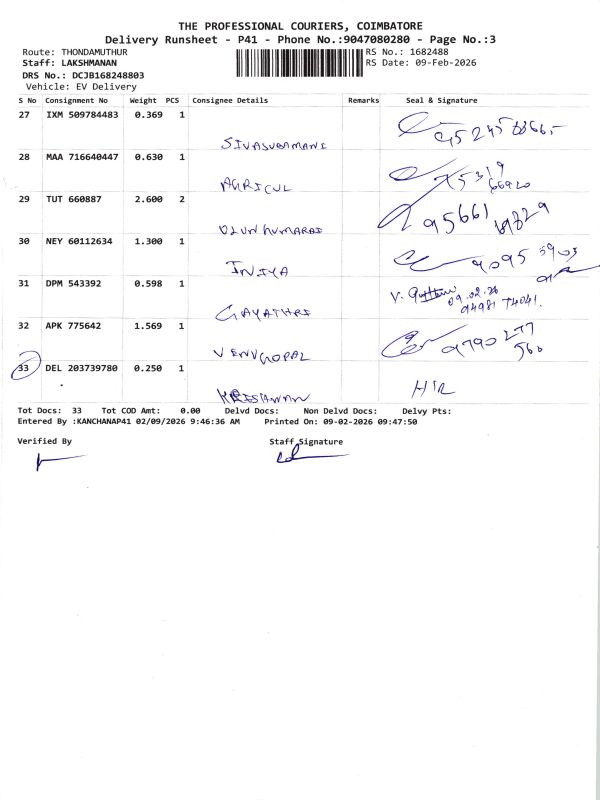 THE PROFESSIONAL COURIERS, COIMBATORE
Delivery Runsheet - P41 - Phone No.:9047080280 - Page No.:3
Route: THONDAMUTHUR RS No.: 1682488
Staff: LAKSHMANAN RS Date: 09-Feb-2026
DRS No.: DCJB168248803
Vehicle: EV Delivery
S No Consignment No Weight PCS Consignee Details Remarks Seal & Signature
27 IXM 509784483 0.369 1
28 MAA 716640447 0.630 1
AGRICUL
29 TUT 660887 2.600 2
30 NEY 60112634 1.300 1
INIYA
31 DPM 543392 0.598 1
09.02.26
GAYATHRI 94981 74041.
32 APK 775642 1.569 1
VENUGOPAL 9790 277
560
33 DEL 203739780 0.250 1
Tot Docs: 33 Tot COD Amt: 0.00 Delvd Docs: Non Delvd Docs: Delvy Pts:
Entered By :KANCHANAP41 02/09/2026 9:46:36 AM Printed On: 09-02-2026 09:47:50
Verified By Staff Signature